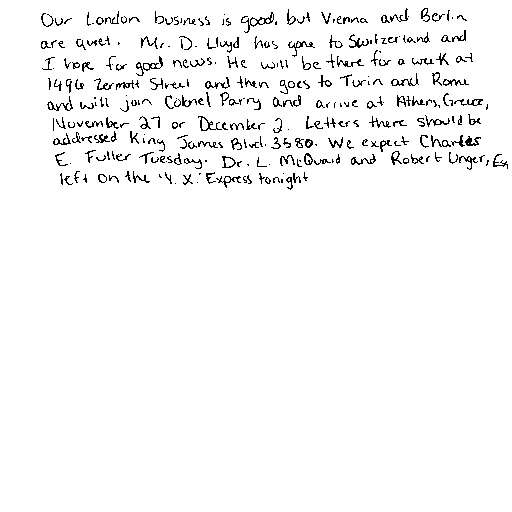 Our London business is good, but Vienna and Berlin
are quiet. Mr. D. Lloyd has gone to Switzerland and
I hope for good news. He will be there for a week at
1496 Zermott Street and then goes to Turin and Rome
and will join Colonel Parry and arrive at Athens, Greece,
November 27 or December 2. Letters there should be
addressed King James Blvd. 3580. We expect Charles
E. Fuller Tuesday. Dr. L. McQuaid and Robert Unger, Esq
left on the "Y. X." Express tonight